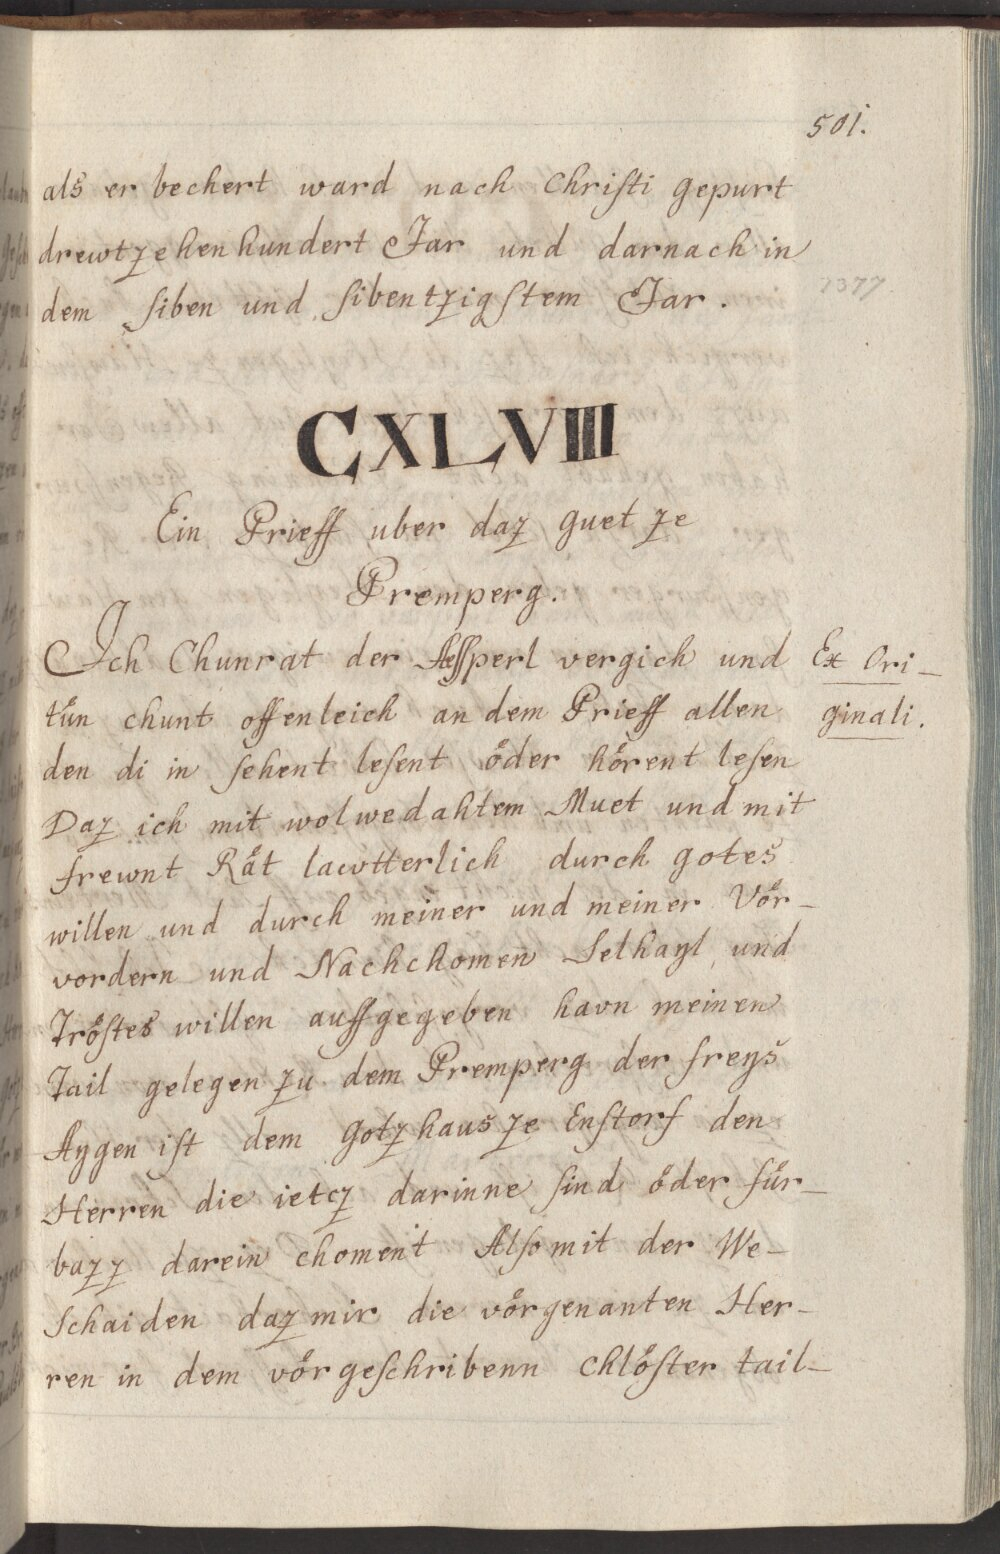 501.
als er bechert ward nach Christi gepurt
drewtzehenhundert Jar und darnach in
dem siben und sibentzigstem Jar.
1377
CXLVIII
Ein Prieff uber daz guet ze
Premperg.
Ich Chunrat der Aessperl vergich und
Ex Ori-
tůn chunt offenleich an dem Prieff allen
ginali.
den di in sehent lesent oͤder hoͤrent lesen
Daz ich mit wolwedahtem Muet und mit
frewnt Raͤt lawtterlich durch gotes
willen und durch meiner und meiner Voͤr-
vordern und Nachchomen Selhayl und
Troͤstes willen auffgegeben havn meinen
Tail gelegen zu dem Premperg der freys
Aygen ist dem Gotzhaus ze Enstorf den
Herren die ietcz darinne sind oͤder fuͤr-
bazz darein choment Also mit der We-
schaiden daz mir die voͤrgenanten Her-
ren in dem voͤrgeschribenn Chloͤster tail-